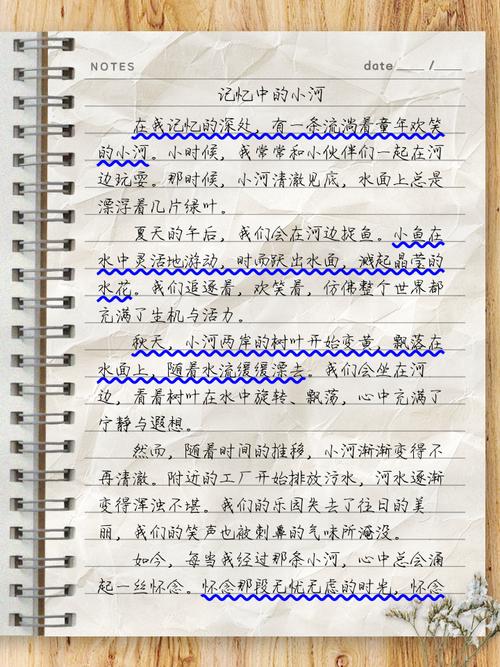 NOTES
date / 
记忆中的小河
在我记忆的深处，有一条流淌着童年欢笑
的小河。小时候，我常常和小伙伴们一起在河
边玩耍。那时候，小河清澈见底，水面上总是
漂浮着几片绿叶。
夏天的午后，我们会在河边捉鱼。小鱼在
水中灵活地游动，时而跃出水面，溅起晶莹的
水花。我们追逐着，欢笑着，仿佛整个世界都
充满了生机与活力。
秋天，小河两岸的树叶开始变黄，飘落在
水面上，随着水流缓缓漂去。我们会坐在河
边，看着树叶在水中旋转、飘荡，心中充满了
宁静与遐想。
然而，随着时间的推移，小河渐渐变得不
再清澈。附近的工厂开始排放污水，河水逐渐
变得浑浊不堪。我们的乐园失去了往日的美
丽，我们的笑声也被刺鼻的气味所淹没。
如今，每当我经过那条小河，心中总会涌
起一丝怀念。怀念那段无忧无虑的时光，怀念